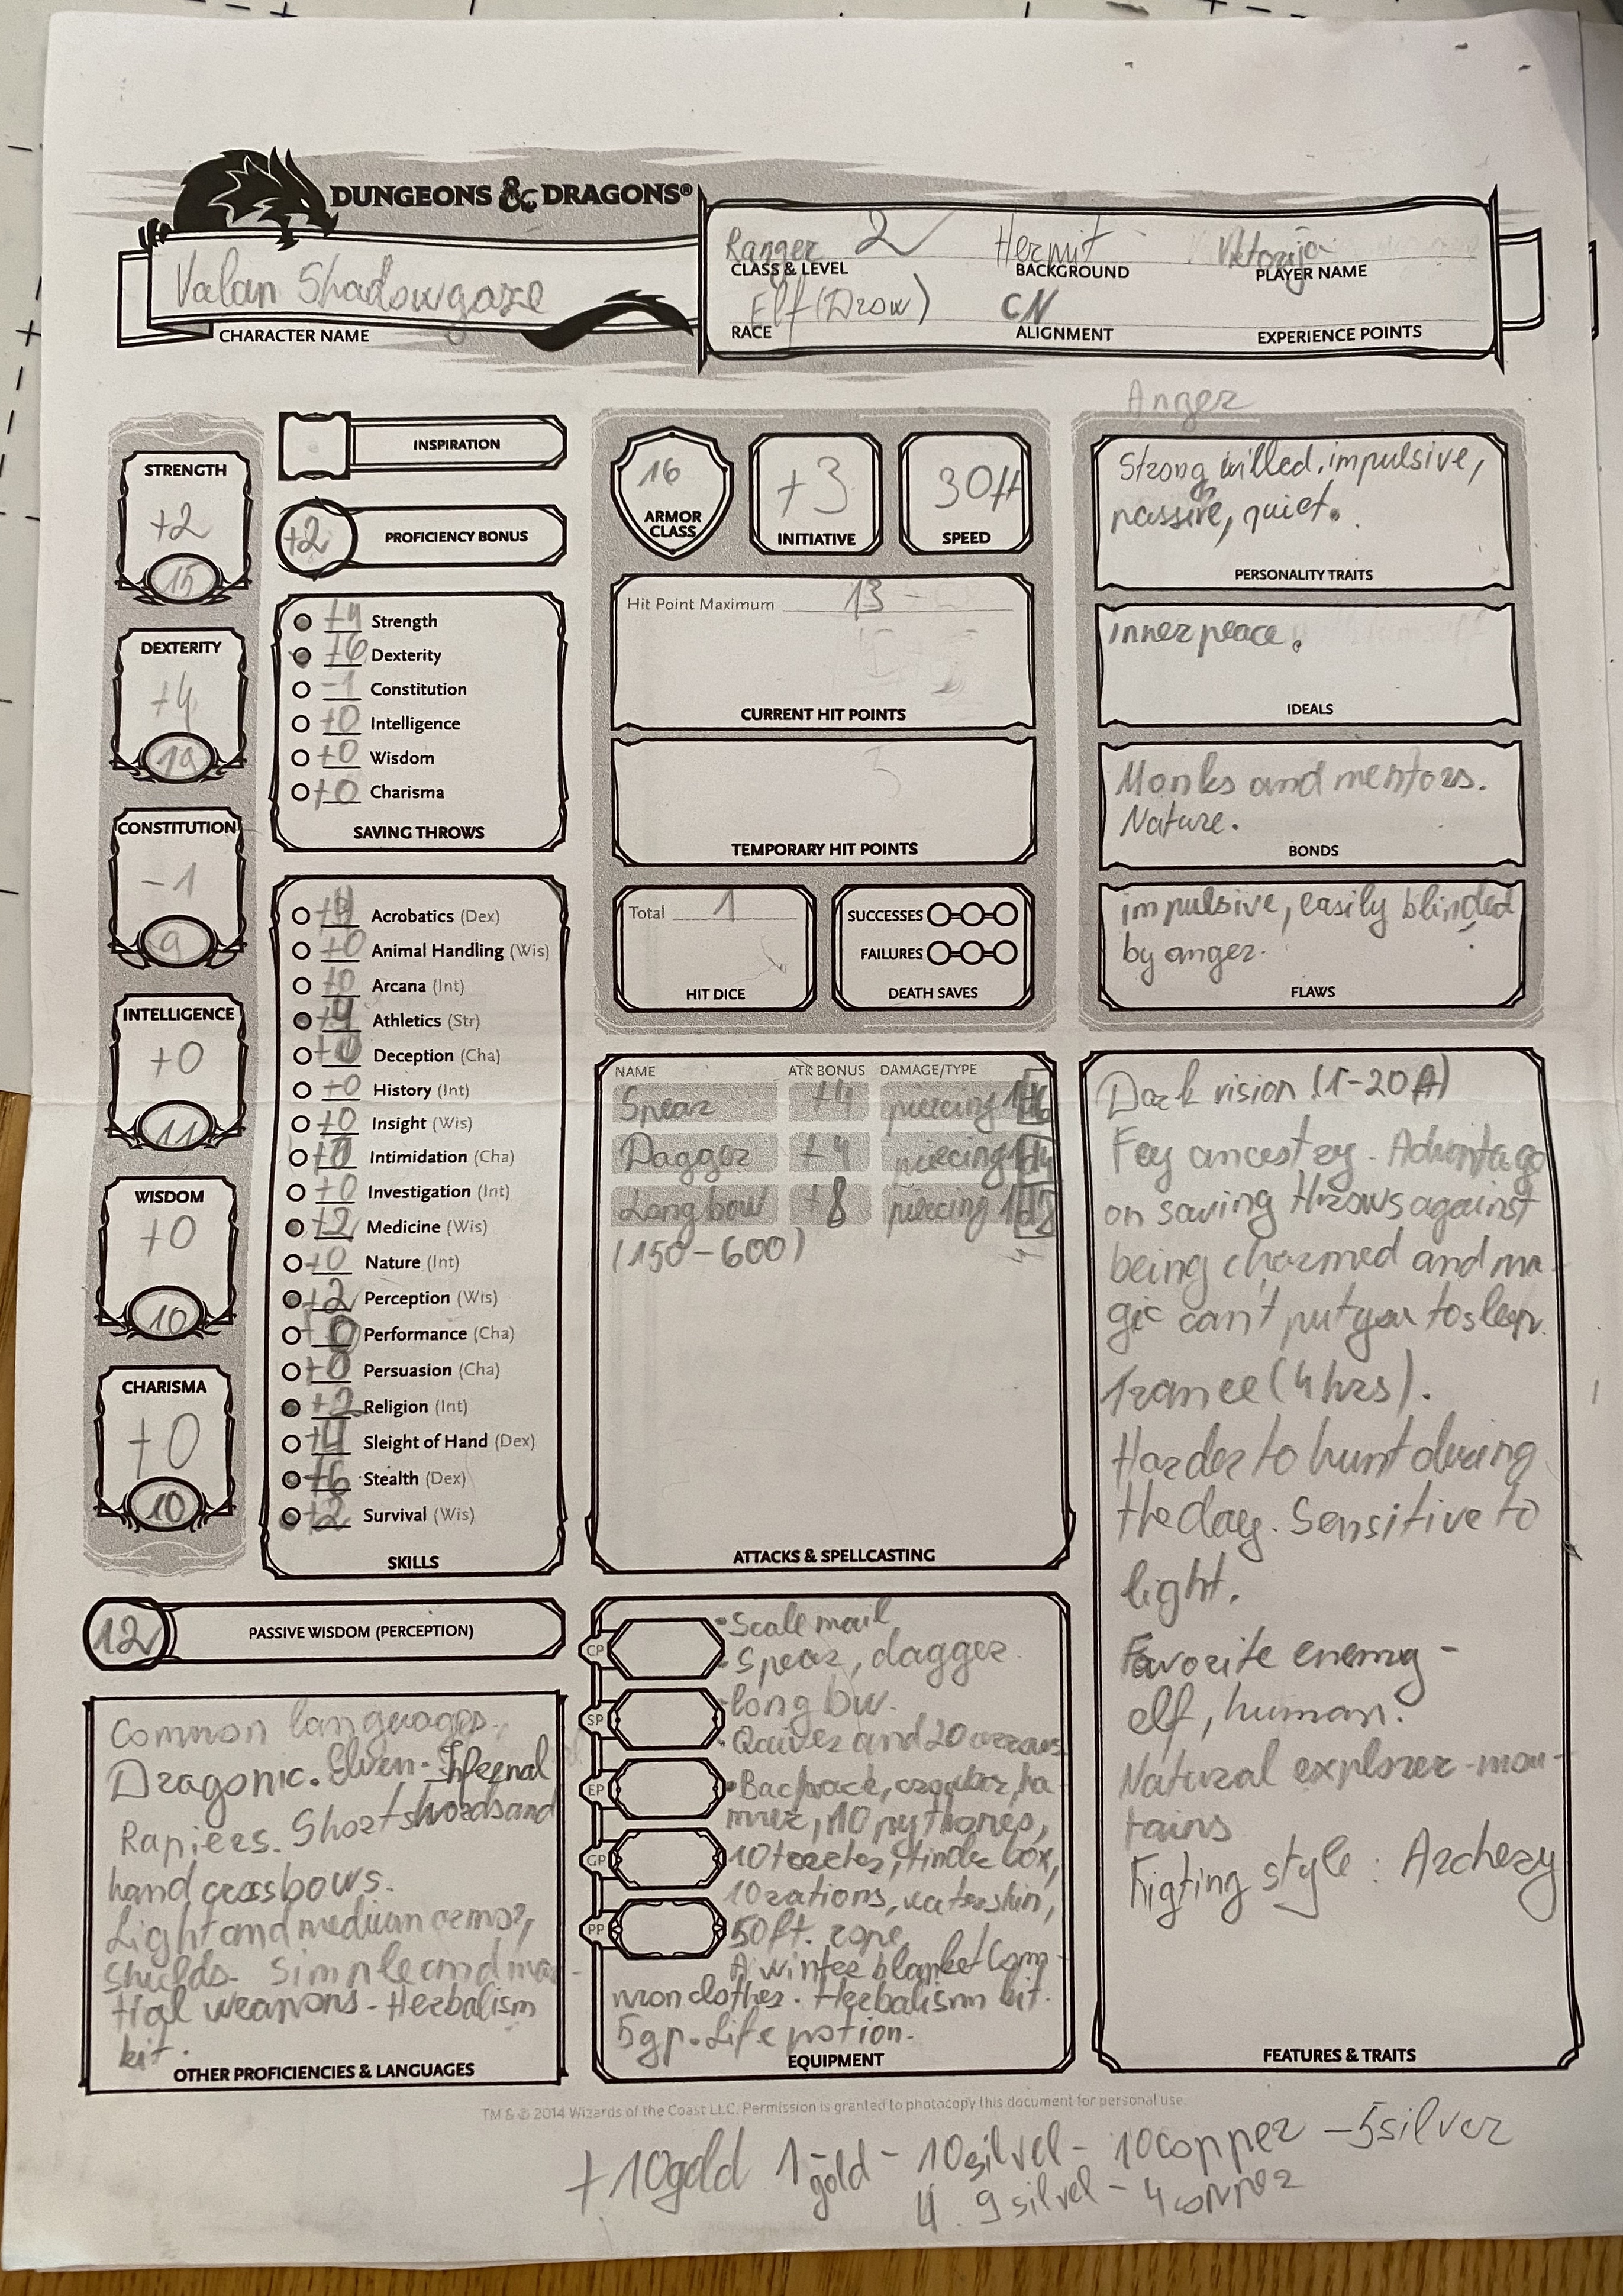 DUNGEONS & DRAGONS®
Valan Shadowgaze
CHARACTER NAME
Ranger 2 Hermit Viktorija
CLASS & LEVEL BACKGROUND PLAYER NAME
Elf (Drow) CN
RACE ALIGNMENT EXPERIENCE POINTS
STRENGTH
+2
15
DEXTERITY
+4
19
CONSTITUTION
-1
9
INTELLIGENCE
+0
11
WISDOM
+0
10
CHARISMA
+0
10
INSPIRATION
+2 PROFICIENCY BONUS
+4 Strength
+6 Dexterity
-1 Constitution
+0 Intelligence
+0 Wisdom
+0 Charisma
SAVING THROWS
+4 Acrobatics (Dex)
+0 Animal Handling (Wis)
+0 Arcana (Int)
+4 Athletics (Str)
+0 Deception (Cha)
+0 History (Int)
+0 Insight (Wis)
+0 Intimidation (Cha)
+0 Investigation (Int)
+2 Medicine (Wis)
+0 Nature (Int)
+2 Perception (Wis)
+0 Performance (Cha)
+0 Persuasion (Cha)
+2 Religion (Int)
+4 Sleight of Hand (Dex)
+6 Stealth (Dex)
+2 Survival (Wis)
SKILLS
12 PASSIVE WISDOM (PERCEPTION)
Common languages.
Dragonic. Elven. Infernal
Rapiers. Shortswords and
hand crossbows.
Light and medium armor,
shields. Simple and mar-
tial weapons - Herbalism
kit.
OTHER PROFICIENCIES & LANGUAGES
16
ARMOR
CLASS
+3
INITIATIVE
30ft
SPEED
Hit Point Maximum 13
CURRENT HIT POINTS
TEMPORARY HIT POINTS
Total 1
HIT DICE
SUCCESSES
FAILURES
DEATH SAVES
NAME ATK BONUS DAMAGE/TYPE
Spear +4 piercing 1d6
Dagger +4 piercing 1d4
Longbow +8 piercing
(150-600)
ATTACKS & SPELLCASTING
CP
SP
EP
GP
PP
• Scale mail
• Spear, dagger
• long bw.
• Quiver and 20 arrows
• Backpack, crowbar, ha
mmer, 10 pythones,
10 torches, tinder box,
10 rations, waterskin,
50ft. rope
A winter blanket Com
mon clothes. Herbalism kit.
5gp. Life potion.
EQUIPMENT
Anger
Strong willed, impulsive,
passive, quiet.
PERSONALITY TRAITS
inner peace.
IDEALS
Monks and mentors.
Nature.
BONDS
impulsive, easily blinded
by anger.
FLAWS
Dark vision (1-20ft)
Fey ancestry - Advantage
on saving throws against
being charmed and ma-
gic can't put you to sleep.
Trance (4 hrs).
Harder to hunt during
the day. Sensitive to
light.
Favorite enemy -
elf, human.
Natural explorer - moun-
tains
Figting style: Archery
FEATURES & TRAITS
TM & © 2014 Wizards of the Coast LLC. Permission is granted to photocopy this document for personal use.
+10gold 1 gold - 10 silvel - 10 copper - 5 silver
4. 9 silvel - 4 copper